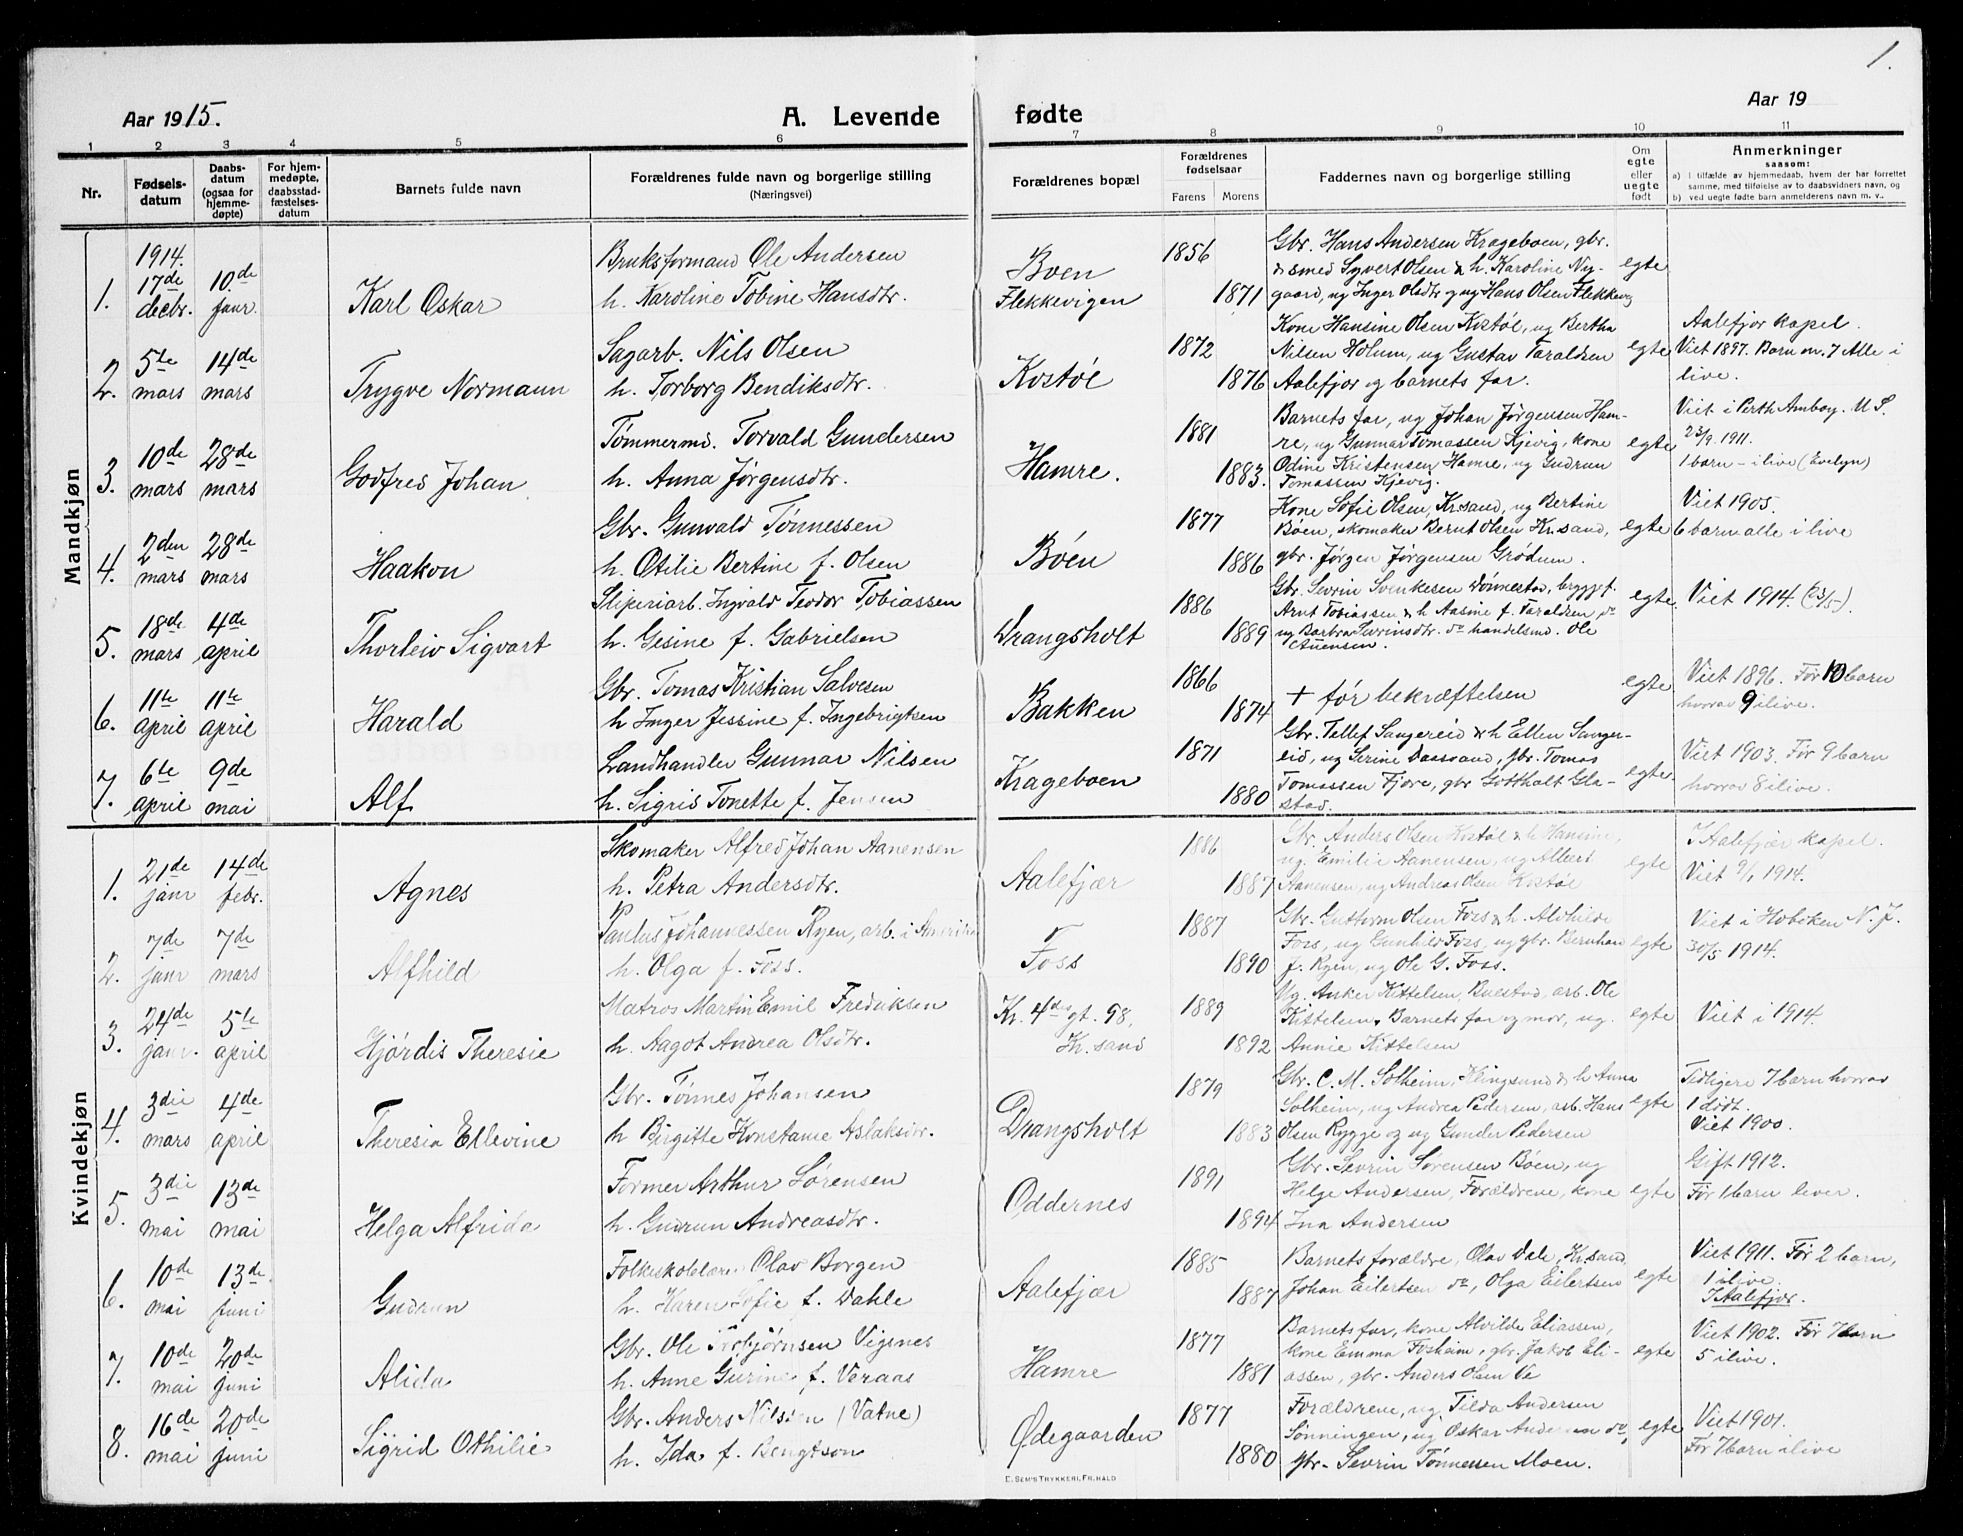 1.
Aar 1915.
A. Levende
fødte
Aar 19
1 2 3 4 5 6 7 8 9 10 11
Nr.
Fødsels-
datum
Daabs-
datum
(ogsaa for
hjemme-
døpte)
For hjem-
medøpte,
daabsstad-
fæstelses-
datum
Barnets fulde navn
Forældrenes fulde navn og borgerlige stilling
(Næringsvei)
Forældrenes bopæl
Forældrenes
fødselsaar
Farens Morens
Faddernes navn og borgerlige stilling
Om
egte
eller
uegte
født
Anmerkninger
saasom:
a) I tilfælde av hjemmedaab, hvem der har forrettet
samme, med tilføielse av to daabsvidners navn, og
b) ved uegte fødte barn anmelderens navn m. v.,
Mandkjøn
1914.
1. 17de decbr. 10.de janr. Karl Oskar
Bruksformand Ole Andersen
h. Karoline Tobine Hansdtr.
Boen
Flekkevigen
1856
1871
Gbr. Hans Andersen Krageboen, gbr.
& smed Syvert Olsen & h. Karoline Ny-
gaard, ug Inger Olsdtr og ug Hans Olsen Flekkevig
egte
2. 5te mars 14de mars Trygve Normann
Sagarb. Nils Olsen
h. Torborg Bendiksdtr.
Kostøl
1872
1876
Kone Hansine Olsen Kostøl, ug Bertha
Nilsen Holum, ug Gustav Taraldsen
Aalefjær og barnets far.
egte
Aalefjær kapel.
Viet 1897. Barn nr. 7 Alle i
live.
3. 10de mars 28de mars Godfred Johan
Tømmermd. Torvald Gundersen
h. Anna Jørgensdtr.
Hamre.
1881
1883.
Barnets far, ug Johan Jørgensen Ham-
re, ug Gunnar Tomassen Kjevig, kone
Odine Kristensen Hamre, ug Gudrun
Tomassen Kjevig.
egte
Viet i Perth Amboy. U S.
23/9 1911.
1 barn - i live (Evelyn)
4. 2den mars 28de mars Haakon
Gbr. Gunvald Tønnessen
h. Otilie Bertine f. Olsen
Bøen
1877
1886
Kone Sofie Olsen, Kr.sand, ug Bertine
Bøen, skomaker Bernt Olsen Kr.sand,
gbr. Jørgen Jørgensen Grødum.
egte
Viet 1905.
6 barn alle i live
5. 18de mars 4de april Thorleiv Sigvart
Sliperiarb. Ingvald Teodor Tobiassen
h. Gesine f. Gabrielsen
Drangsholt
1886
1889
Gbr. Sevrin Svenkesen Dønnestad, brygget.
Arnt Tobiassen & h Aasine f. Taraldsen, do
ug Barbra Sevrinsdtr. do handelsmd. Ole
egte
Viet 1914. (23/5).
6. 11te april 11te april Harald
Gbr. Tomas Kristian Salvesen
h Inger Jessine f. Ingebrigtsen
Bakken
1866
1874
+ før bekræftelsen
egte
Viet 1896. Før 10 barn
hvorav 9 ilive.
7. 6te april 9de mai Alf
Landhandler Gunnar Nilsen
h. Sigrid Tonette f. Jensen
Krageboen
1871
1880
Gbr. Tellef Sangereid & h Ellen Sanger-
eid, ug Serine Daasvand, gbr. Tomas
Tomassen Fjære, gbr Gotthalt Gla-
stad.
egte
Viet 1903. Før 9 barn
hvorav 8 ilive.
Kvindekjøn
1. 21de janr 14de febr. Agnes
Skomaker Alfred Johan Aanensen
h. Petra Andersdtr.
Aalefjær
1886
1887
Gbr. Anders Olsen Kostøl & h Hansine,
ug. Emilie Aanensen, ug Albert
Aanensen, ug Andreas Olsen Kostøl
egte
I Aalefjær kapel.
Viet 9/1 1914.
2. 7de janr 7de mars Alfhild
Paulus Johannessen Ryen, arb. i Amerika
h. Olga f. Foss.
Foss
1887
1890
Gbr. Guttorm Olsen Foss & h. Alvhilde
Foss, ug Gunhild Foss, ug gbr. Bernhan
f. Ryen, ug Ole G. Foss.
egte
Viet i Hoboken N. J.
30/5 1914.
3. 24de janr. 5te april Hjørdis Theresie
Matros Martin Emil Fredriksen
h. Aagot Andrea Olsdtr.
Kr. 4des gt. 98,
Kr.sand
1889
1892
Ug. Anker Kittelsen, Buestad, arb. Ole
Kittelsen, Barnets far og mor, ug.
Annie Kittelsen
egte
Viet i 1914.
4. 3die mars 4de april Theresia Ellevine
Gbr. Tønnes Johansen
h Birgitte Konstanse Aslaksdtr.
Drangsholt
1879
1883
Gbr. C. M. Solheim, Klingsund & h Anna
Solheim, ug Andrea Pedersen, arb. Hans
Olsen Rygge og ug Gunder Pedersen
egte
Tidligere 7 barn hvorav
1 dødt.
Viet 1900.
5. 3die mai 13de mai Helga Alfrida
Former Arthur Sørensen
h. Gudrun Andreasdtr.
Oddernes
1891
1894
Gbr. Sevrin Sørensen Bøen, ug
Helge Andersen, Forældrene, kone
Ina Andersen
egte
Gift 1912.
Før 1 barn lever.
6. 10de mai 13de juni Gudrun
Folkeskolelærer Olav Borgen
h. Karen Sofie f. Dahle
Aalefjær
1885
1887
Barnets forældre, Olav Dale, Kr.sand,
Johan Eilertsen do, Olga Eilertsen
egte
Viet 1911. Før 2 barn,
1 ilive.
I Aalefjær.
7. 10de mai 20de juni Alida
Gbr. Ole Torbjørnsen Vigsnes
h. Anne Gurine f. Veraas
Hamre
1877
1881
Barnets far, kone Alvilde Eliassen,
kone Emma Fosheim, gbr. Jakob Eli-
assen, gbr. Anders Olsen Ve
egte
Viet 1902. Før 7 barn
5 ilive.
8. 16de mai 20de juni Sigrid Othilie
Gbr. Anders Nilssen (Vatne)
h. Ida f. Bengtson
Ødegaarden
1877
1880
Forældrene, ug Tilda Andersen
Sønningen, ug Oskar Andersen do,
gbr. Sevrin Tønnessen Moen.
egte
Viet 1901.
Før 7 barn ilive
E. SEM'S TRYKKERI, FR.HALD